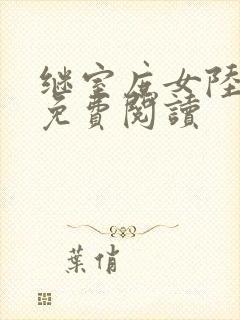 继室庶女陸
免費閱讀
葉俏